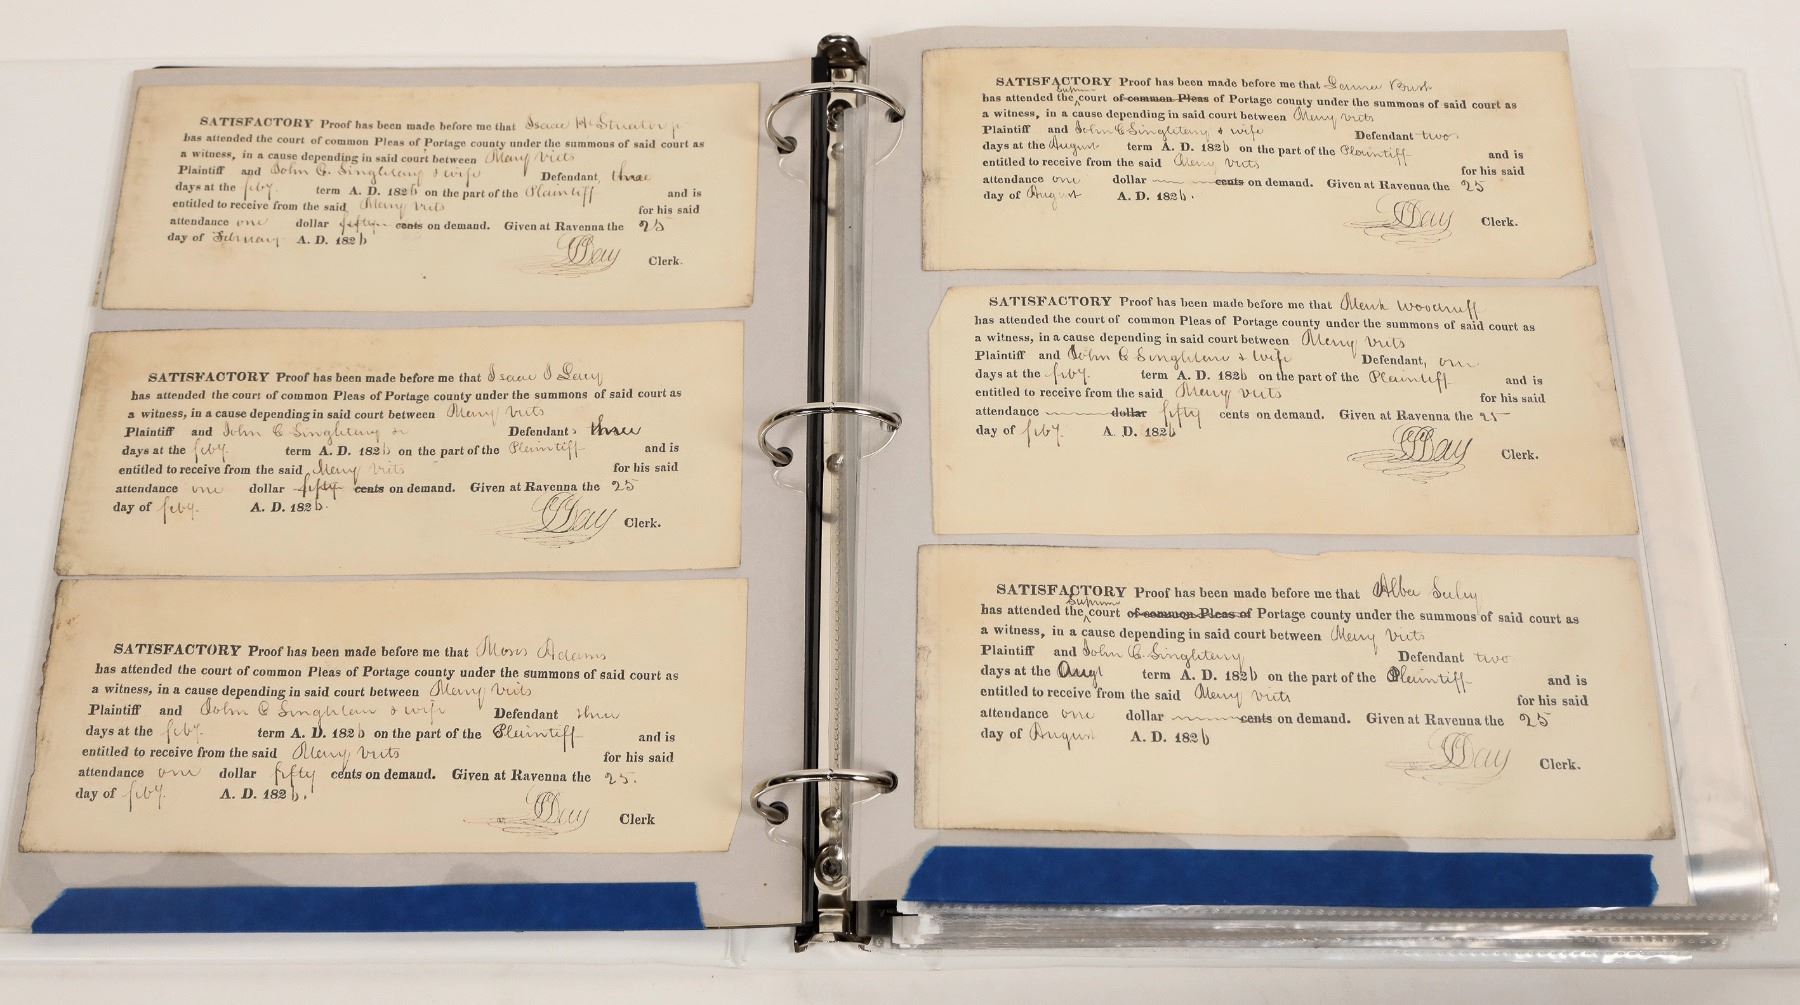 SATISFACTORY Proof has been made before me that Isaac H Streator jr
has attended the court of common Pleas of Portage county under the summons of said court as
a witness, in a cause depending in said court between
Plaintiff and John C. Singletary & wife Defendant, three
days at the feby. term A. D. 1826 on the part of the Plaintiff and is
entitled to receive from the said for his said
attendance one dollar fifty cents on demand. Given at Ravenna the 25
day of February A. D. 1826
Clerk.
SATISFACTORY Proof has been made before me that Isaac J Lacy
has attended the court of common Pleas of Portage county under the summons of said court as
a witness, in a cause depending in said court between
Plaintiff and John C Singletary Defendant three
days at the feby. term A. D. 1826 on the part of the Plaintiff and is
entitled to receive from the said for his said
attendance one dollar fifty cents on demand. Given at Ravenna the 25
day of feby. A. D. 1826.
Day Clerk.
SATISFACTORY Proof has been made before me that Moses Adams
has attended the court of common Pleas of Portage county under the summons of said court as
a witness, in a cause depending in said court between
Plaintiff and John C & wife Defendant three
days at the feby. term A. D. 1826 on the part of the Plaintiff and is
entitled to receive from the said for his said
attendance one dollar fifty cents on demand. Given at Ravenna the 25.
day of feby. A. D. 1826.
Day Clerk
SATISFACTORY Proof has been made before me that Brush
has attended the supreme court of common Pleas of Portage county under the summons of said court as
a witness, in a cause depending in said court between
Plaintiff and John C Singletary & wife Defendant two
days at the August term A. D. 1826 on the part of the Plaintiff and is
entitled to receive from the said for his said
attendance one dollar cents on demand. Given at Ravenna the 25
day of August A. D. 1826.
Day Clerk.
SATISFACTORY Proof has been made before me that Woodruff
has attended the court of common Pleas of Portage county under the summons of said court as
a witness, in a cause depending in said court between
Plaintiff and John C & wife Defendant, one
days at the feby. term A. D. 1826 on the part of the Plaintiff and is
entitled to receive from the said for his said
attendance dollar fifty cents on demand. Given at Ravenna the 25
day of feby. A. D. 1826
Day Clerk.
SATISFACTORY Proof has been made before me that Alba Seely
has attended the supreme court of common Pleas of Portage county under the summons of said court as
a witness, in a cause depending in said court between
Plaintiff and John C. Singletary Defendant two
days at the Augt term A. D. 1826 on the part of the Plaintiff and is
entitled to receive from the said for his said
attendance one dollar cents on demand. Given at Ravenna the 25
day of August A. D. 1826
Day Clerk.